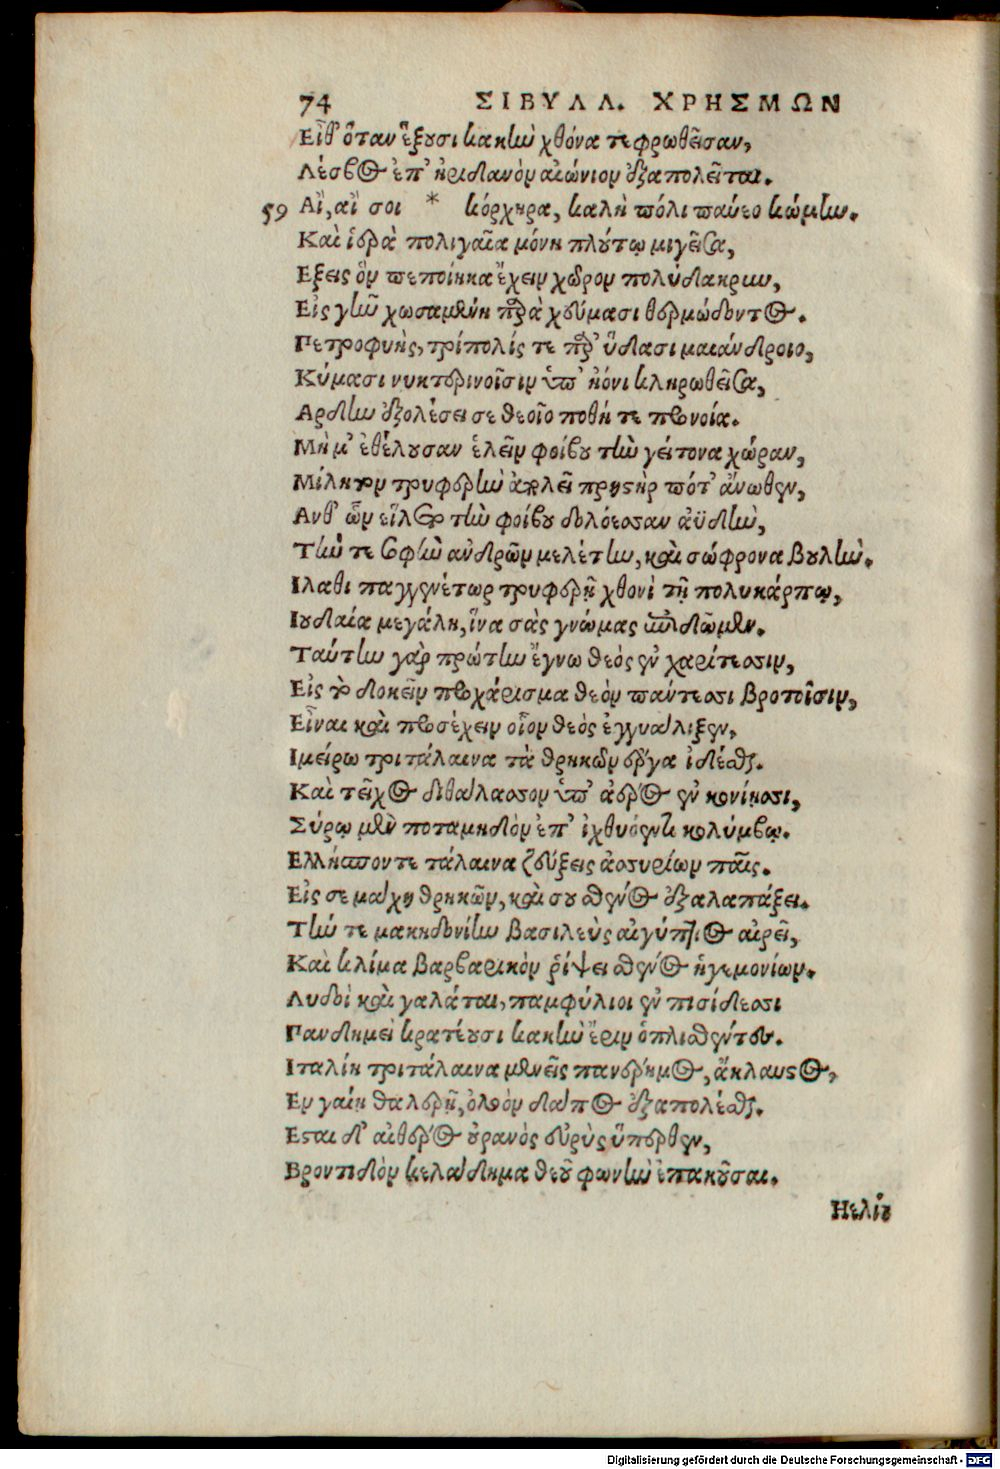 74 ΣΙΒΥΛΛ. ΧΡΗΣΜΩΝ
Εἶθ' ὅταν ἕξουσι κακὴν χθόνα τεφρωθεῖσαν,
Λέσβος ἐπ' ἠριδανὸν αἰώνιον ἐξαπολεῖται.
59 Αἲ, αἲ σοι * κόρκηρα, καλὴ πόλι παύεο κώμην.
Καὶ ἱερὰ πολιγαῖα μόνη πλούτῳ μιγεῖσα,
Εξεις ὃν πεποίηκα ἔχειν χῶρον πολύδακρυν,
Εἰς γῆν χωσαμένη παρὰ χεύμασι θερμώδοντος.
Πετροφυὴς, τρίπολίς τε παρ' ὕδασι μαιάνδροιο,
Κύμασι νυκτερινοῖσιν ὑπ' ἠόνι κληρωθεῖσα,
Αρδην ἐξολέσει σε θεοῖο ποθή τε προνοία.
Μὴ μ' ἐθέλουσαν ἑλεῖν φοίβου τὴν γείτονα χώραν,
Μίλητον τρυφερὴν ἀπολεῖ πρηστὴρ πότ' ἄνωθεν,
Ανθ' ὧν εἵλετο τὴν φοίβου δολόεσσαν ἀϋδὴν,
Τήν τε σοφὴν ἀνδρῶν μελέτην, καὶ σώφρονα βουλὴν.
Ιλαθι παγγενέτωρ τρυφερῇ χθονὶ τῇ πολυκάρπῳ,
Ιουδαία μεγάλη, ἵνα σὰς γνώμας ἐπιδῶμεν.
Ταύτην γὰρ πρώτην ἔγνω θεὸς ἐν χαρίτεσσιν,
Εἰς τὸ δοκεῖν προχάρισμα θεὸν πάντεσσι βροτοῖσιν,
Εἶναι καὶ προσέχειν οἷον θεὸς ἐγγυάλιξεν,
Ιμείρω τριτάλαινα τὰ θρηκῶν ἔργα ἰδέσθαι.
Καὶ τεῖχος διθάλασσον ὑπ' ἀέρος ἐν κονίῃσι,
Σύρῳ μὲν ποταμηδὸν ἐπ' ἰχθυόεντι κολύμβῳ.
Ελλήσποντε τάλαινα ζεύξεις ἀσσυρίων παῖς.
Εἰς σε μάχη θρηκῶν, καὶ σου σθένος ἐξαλαπάξει.
Τήν τε μακηδονίην βασιλεὺς αἰγύπτιος αἱρεῖ,
Καὶ κλίμα βαρβαρικὸν ῥίψει σθένος ἡγεμονίων.
Λυδοὶ καὶ γαλάται, παμφύλιοι ἐν πισίδεσσι
Πανδημεὶ κρατέουσι κακὴν ἔριν ὁπλισθέντες.
Ιταλίη τριτάλαινα μένεῖς πανέρημος, ἄκλαυστος,
Εν γαίῃ θαλερῇ, ὀλοὸν δάπος ἐξαπολέσθαι.
Εσται δ' αἰθέρος οὐρανὸς εὐρὺς ὕπερθεν,
Βροντηδὸν κελάδημα θεοῦ φωνὴν ἐπακοῦσαι.
Ηελίου
Digitalisierung gefördert durch die Deutsche Forschungsgemeinschaft - DFG